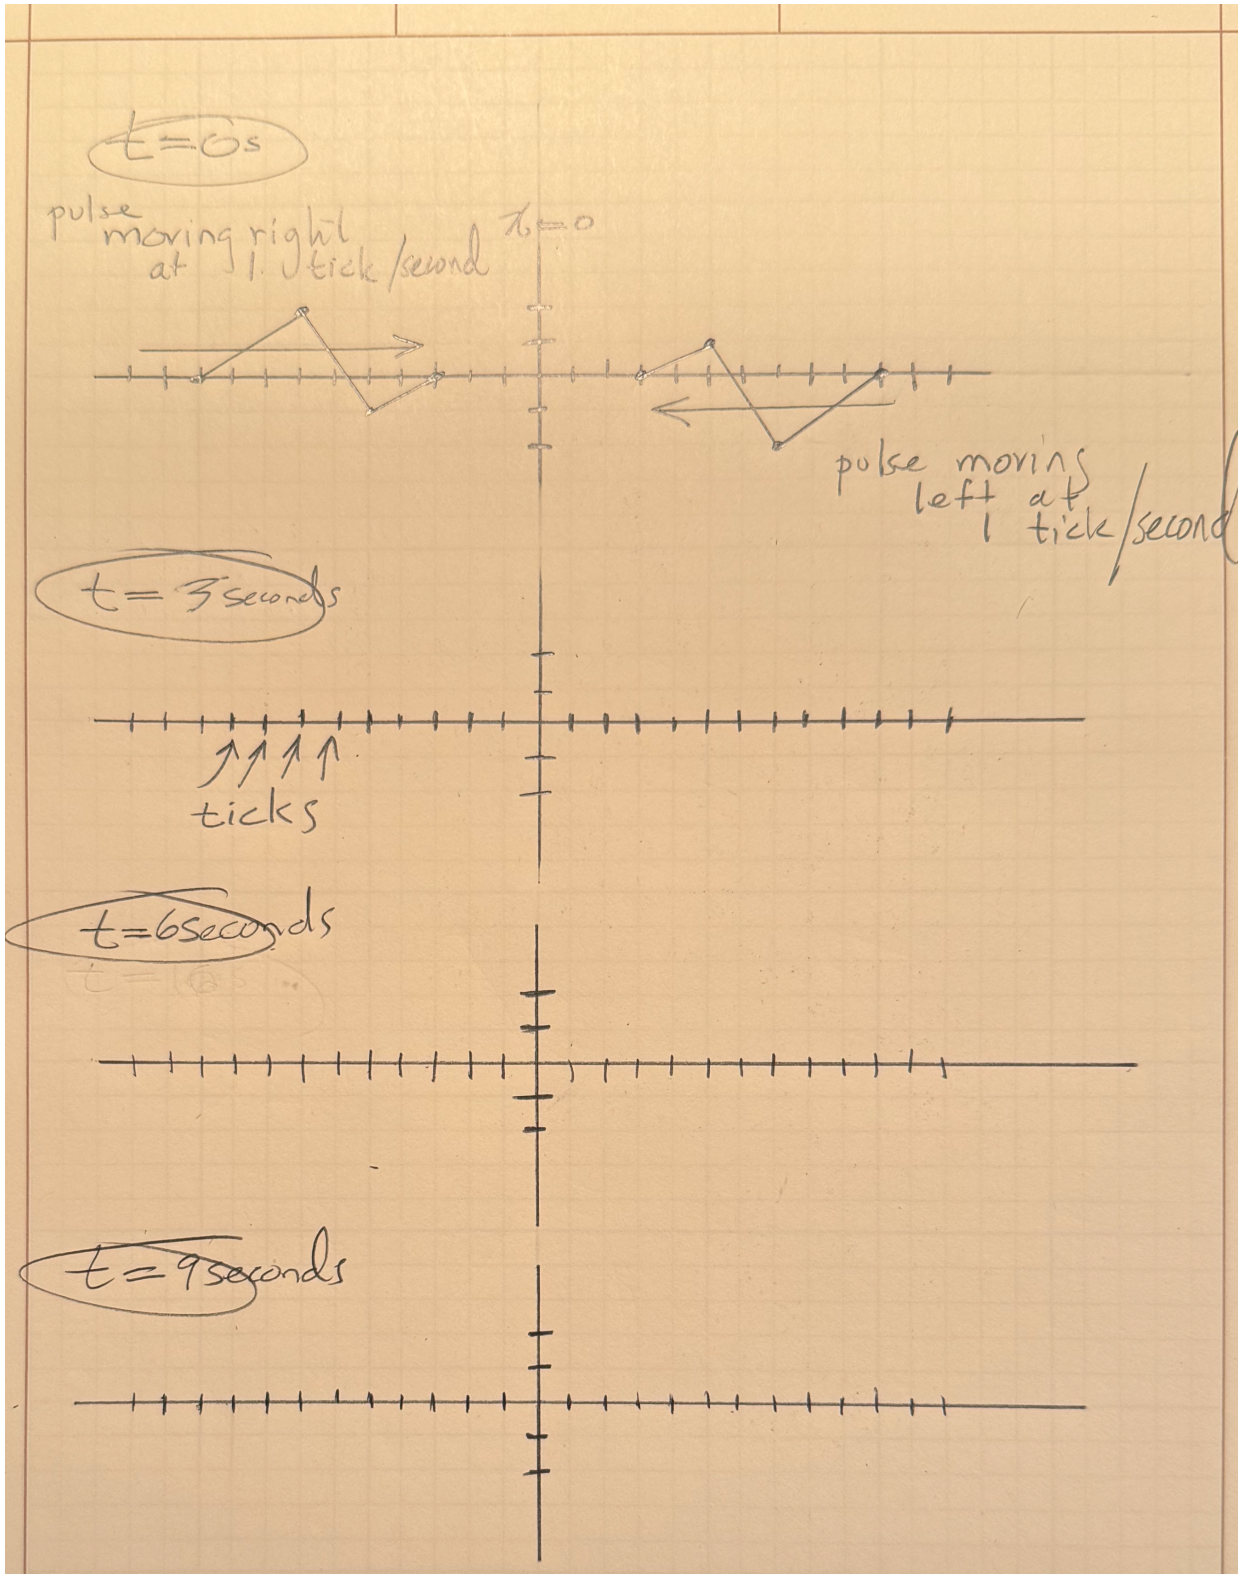 t=0s
pulse
moving right
at 1 tick/second
x=0
pulse moving
left at
1 tick/second
t= 3 seconds
ticks
t=6seconds
t=9seconds